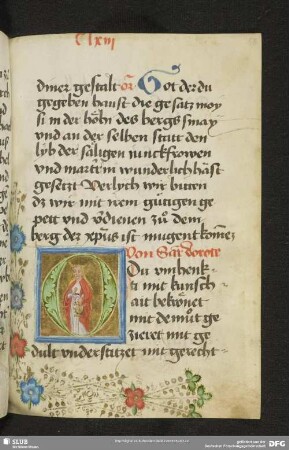 Clxiij
diner gestalt or. Got der du
gegeben haust die gesatz moy
si in der höhi des bergs sinay
vnd an der selben statt den
lyb der säligen iunckfrowen
vnd martrin wunderlich häst
gesetzt Verlych wir bitten
dz wir mit irem gütigen ge
pett vnd vdienen zů dem
berg der xp̄us ist mugent kom̄en
Von Sāt dorote
O Du
mit kunsch
ait bekrönet
mit demůt ge
zieret mit ge
dult vnderstützet mit gerecht
SLUB
DFG